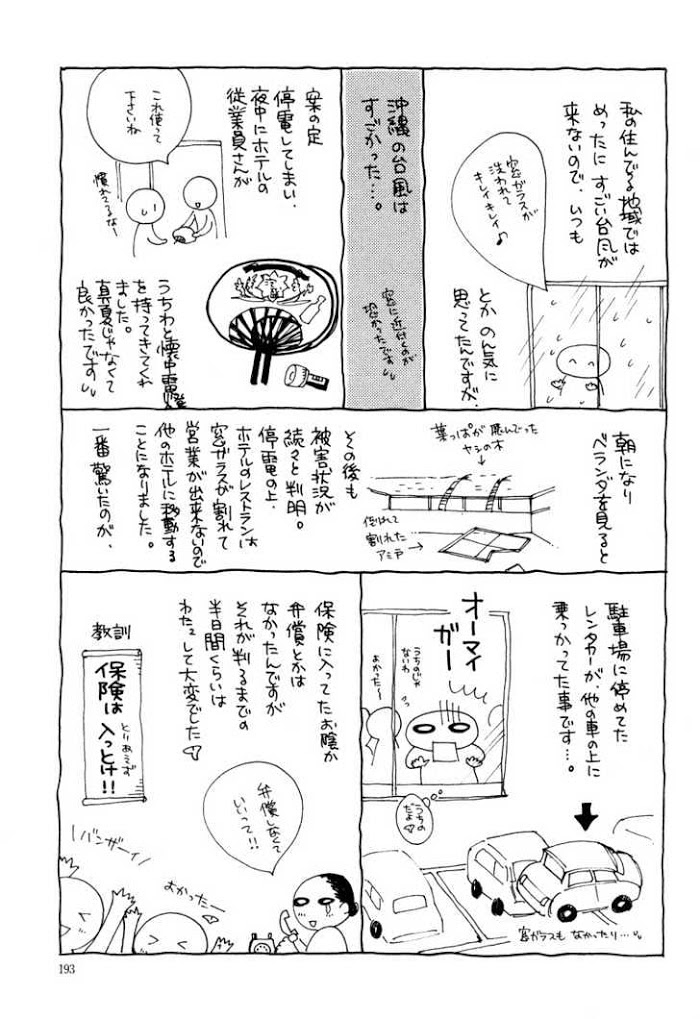 私の住んでる地域では
めったに すごい台風が
来ないので、いつも
窓ガラスが
洗われて
キレイキレイ♪
とか のん気に
思ってたんですが、
沖縄の台風は
すごかった…。
窓に近付くのが
恐かったです
案の定
停電してしまい、
夜中にホテルの
従業員さんが
これ使って
下さいね
慣れてるなー
うちわと懐中電燈
を持ってきてくれ
ました。
真夏じゃなくて
良かったです
朝になり
ベランダを見ると
葉っぱが飛んでった
ヤシの木
倒れて
割れた
アミ戸
その後も
被害状況が
続々と判明。
停電の上、
ホテルのレストランは
窓ガラスが割れて
営業が出来ないので
他のホテルに移動する
ことになりました。
一番驚いたのが、
駐車場に停めてた
レンタカーが、他の車の上に
乗っかってた事です…。
オーマイ
ガー
うちのじゃ
ないわ
よかったー
うちの
だよ
窓ガラスも なかったり…
保険に入ってたお陰か
弁償とかは
なかったんですが
それが判るまでの
半日間くらいは
わたわたして大変でした
弁償しなくて
いいって!!
教訓
保険は
とりあえず
入っとけ!!
バンザーイ
よかったー
193